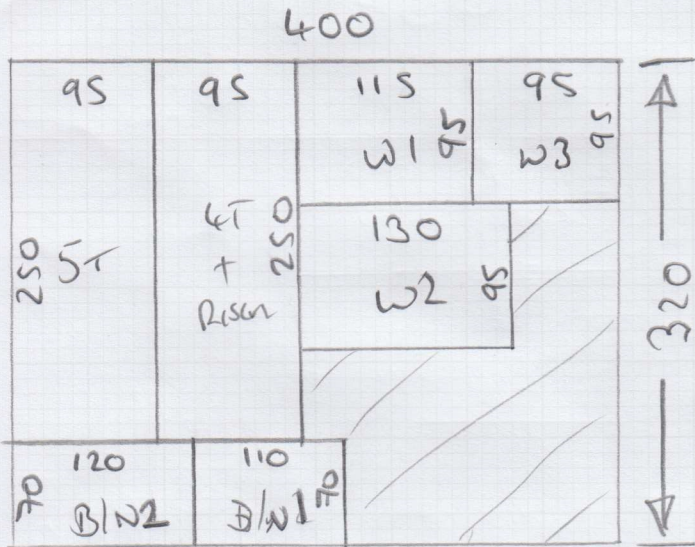 400
95 95 115 95
W1 95 W3 95
250 5T
4T
+
Riser
250
130
W2 95
320
120 110
70 B/N2 B/N1 70